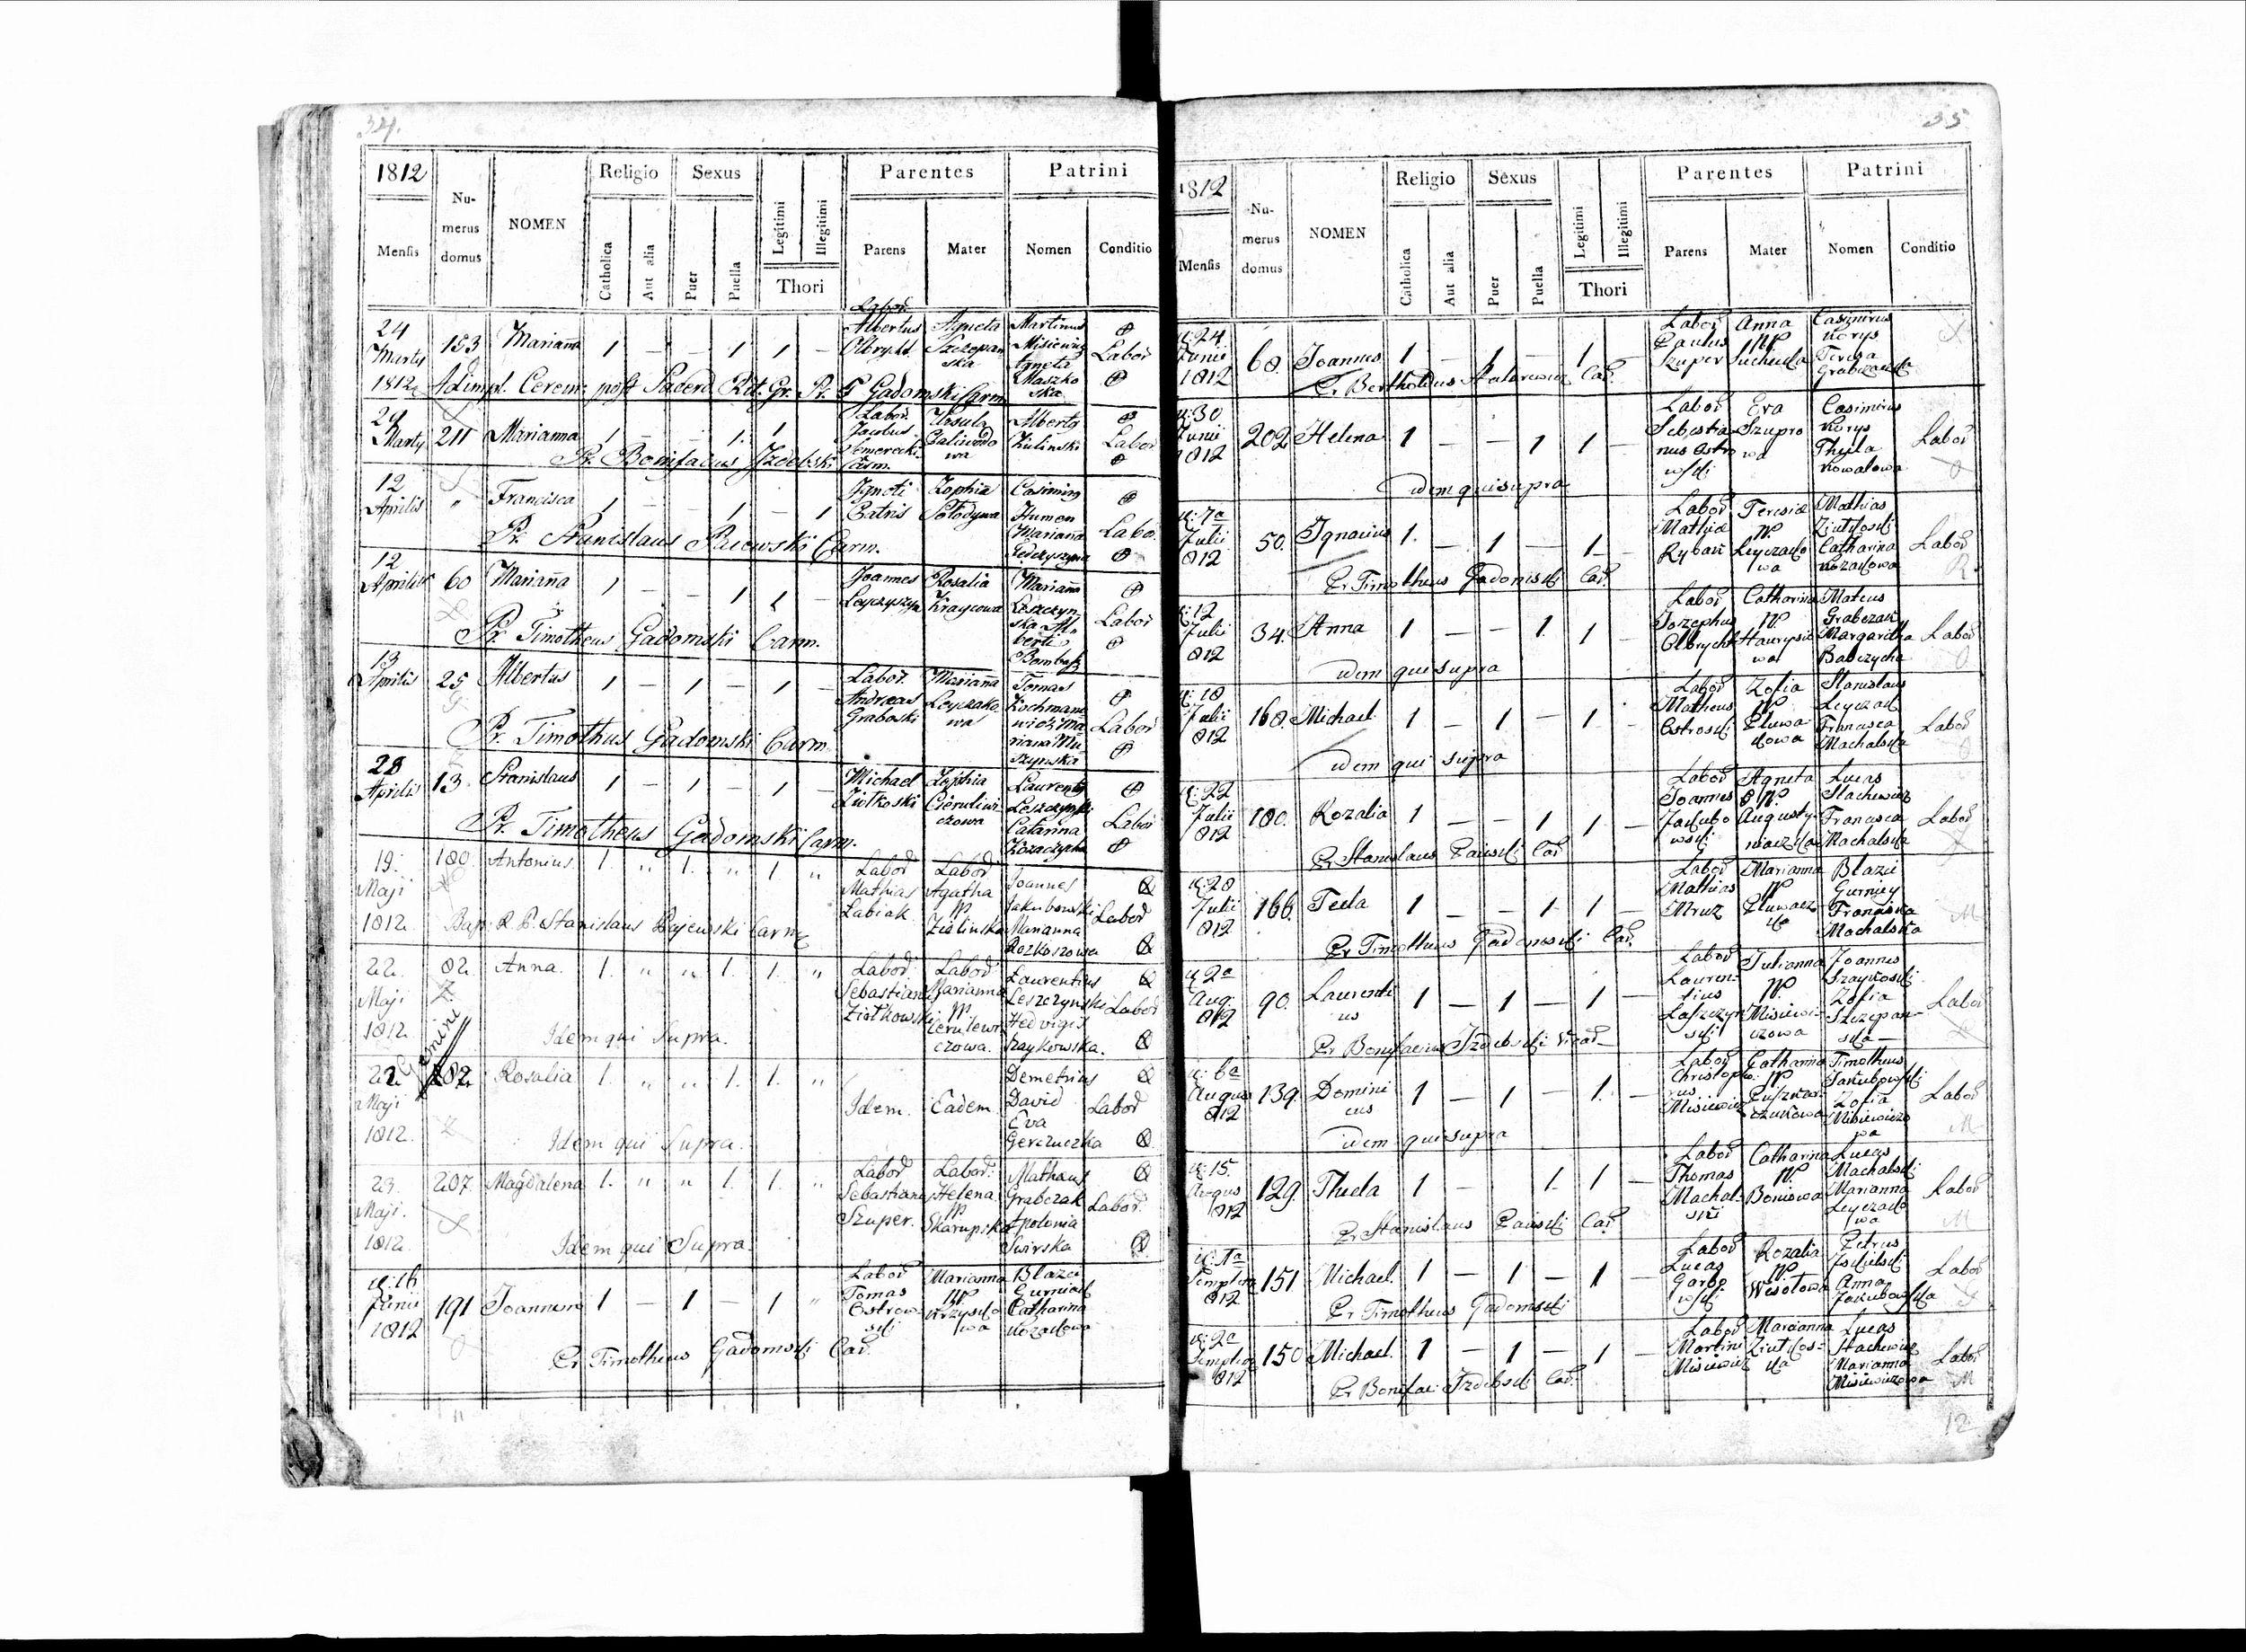 34.
1812 Religio Sexus Parentes Patrini
Mensis Numerus domus NOMEN Catholica Aut alia Puer Puella Legitimi Illegitimi Thori Parens Mater Nomen Conditio
24 Marty 1812 153 Marianna 1 — — 1 1 — Labor. Albertus Olbrycht Agneta Szczepanska Martinus Misiewicz Agneta Maszkoska Labor
Adimpl. Cerem. post Sacerd. Rit. Gr. Pr. T Gadomski Carm
24 Marty 211 Marianna 1 — — 1. 1 Labor. Jacobus Ursula Alberto Zielinski Labor
Pr. Bonifacius Jzdebski Carm.
12 Aprilis " Francisca 1 — — 1 — 1 Jgnoti Patris Zophia Casimirus Humen Marianna Labo.
Pr. Stanislaus Paiewski Carm.
12 Aprilis 60 Marianna 1 — — 1 1 — Joannes Rosalia Kraycowa Marianna Leszczynska Alberti Bombasz Labor
Pr. Timotheus Gadomski Carm.
13 Aprilis 25 Albertus 1 — 1 — 1 — Labor. Andreas Graboski Marianna Leyczakowa Tomas Marianna Labor
Pr. Timothus Gadomski Carm
28 Aprilis 13. Stanislaus 1 — 1 — 1 — Michael Ziotkoski Zophia Laurenty Leszczynski Catarina Kozaczycha Labor
Pr. Timotheus Gadomski Carm.
19. Maji 1812. 180. Antonius. 1. " 1. " 1 " Labor Mathias Labiak Labor Agatha Zielinska Joannes Jakubowski Marianna Rozkoszowa Labor
Bap. R. P. Stanislaus Pajewski Carm
22. Maji 1812. 82. Anna. 1. " " 1. 1. " Labor. Sebastian Ziotkowski Labor Marianna Cerulewiczowa. Laurentius Leszczynski Hedvigis Szaykowska. Labor
Idem qui Supra.
Gemini
22 Maji 1812. 82. Rosalia 1. " " 1. 1. " Idem. Eadem. Demetrius David Eva Gerczuczka Labor
Idem qui Supra.
23. Maji. 1812. 207. Magdalena 1. " " 1. 1. " Labor Sebastian Szuper. Labor. Helena Skarupska Mathaus Grabczak Apolonia Swirska Labor.
Idem qui Supra.
d. 16 Junii 1812 191 Joannem 1 — 1 — 1 " Labor Tomas Ostrowski Marianna Krzyskowa Blazei Gurniak Catharina Kozakowa
Pr Timotheus Gadomski Car.
35
1812 Religio Sexus Parentes Patrini
Mensis Numerus domus NOMEN Catholica Aut alia Puer Puella Legitimi Illegitimi Thori Parens Mater Nomen Conditio
d. 24 Junii 1812 68. Joannes 1 — 1 — 1 — Labor Paulus Szuper Anna Casimirus Korys Teresa
Pr Bertholdus Car.
d. 30 Junii 812 202 Helena 1 — — 1 1 — Labor Sebestianus Ostrowski Eva Szuprowa Casimirus Korys Thecla Kowalowa Labor
idem qui supra
d. 7a Julii 812 50. Ignacius 1. — 1 — 1 — Labor Mathie Rybak Teresia Leyczakowa Mathias Ziutkoski Catharina Kozakowa Labor
Pr Timotheus Gadomski Car.
d. 12 Julii 812 34. Anna 1 — — 1. 1 — Labor Jozephus Olbrycht Catharina Mateus Grabczak Margaritha Babczycha Labor
idem qui supra
d. 18 Julii 812 168. Michael 1 — 1 — 1 — Labor Matheus Ostroski Zofia Stanislaus Leyczak Francisca Machalska Labor
idem qui supra
d. 22 Julii 812 180. Rozalia 1 — — 1 1 — Labor Joannes Jakubowski Agneta Lucas Stachewicz Francisca Machalska Labor
Pr Stanislaus Paiewski Car
d. 28 Julii 812 166. Tecla 1 — — 1 1 — Labor Mathias Mruz Marianna Blazei Gurniey Franciska Machalska
Pr Timotheus Gadomski Car.
d. 2a Aug. 812 90. Laurentius 1 — 1 — 1 — Labor Laurentius Laszczynski Julianna Misiewiczowa Joannes Szaykoski Zofia Szczepanska Labor
Pr Bonifacius Jzdebski Vicar
d. 6a Augus 812 139. Dominicus 1 — 1 — 1. — Labor Christophorus Misiewicz Catharina Timotheus Jakubowski Zofia Misiewiczowa Labor
idem qui supra
d. 15. Augus 812 129. Thecla 1 — 1 1 — Labor Thomas Machalski Catharina Boniowa Lucas Machalski Marianna Leyczakowa Labor
Pr Stanislaus Paiewski Car.
d. 1a Septembra 812 151 Michael. 1 — 1 — 1 — Labor Lucas Garbowski Rozalia Wesolowa Petrus Anna Jakubowska Labor
Pr Timotheus Gadomski
d. 2a Septembra 812 150 Michael. 1 — 1 — 1 — Labor Martini Misiewicz Marianna Ziutkoska Lucas Stachewicz Marianna Misiewiczowa Labor
Pr Bonifac: Jzdebski Car.
12